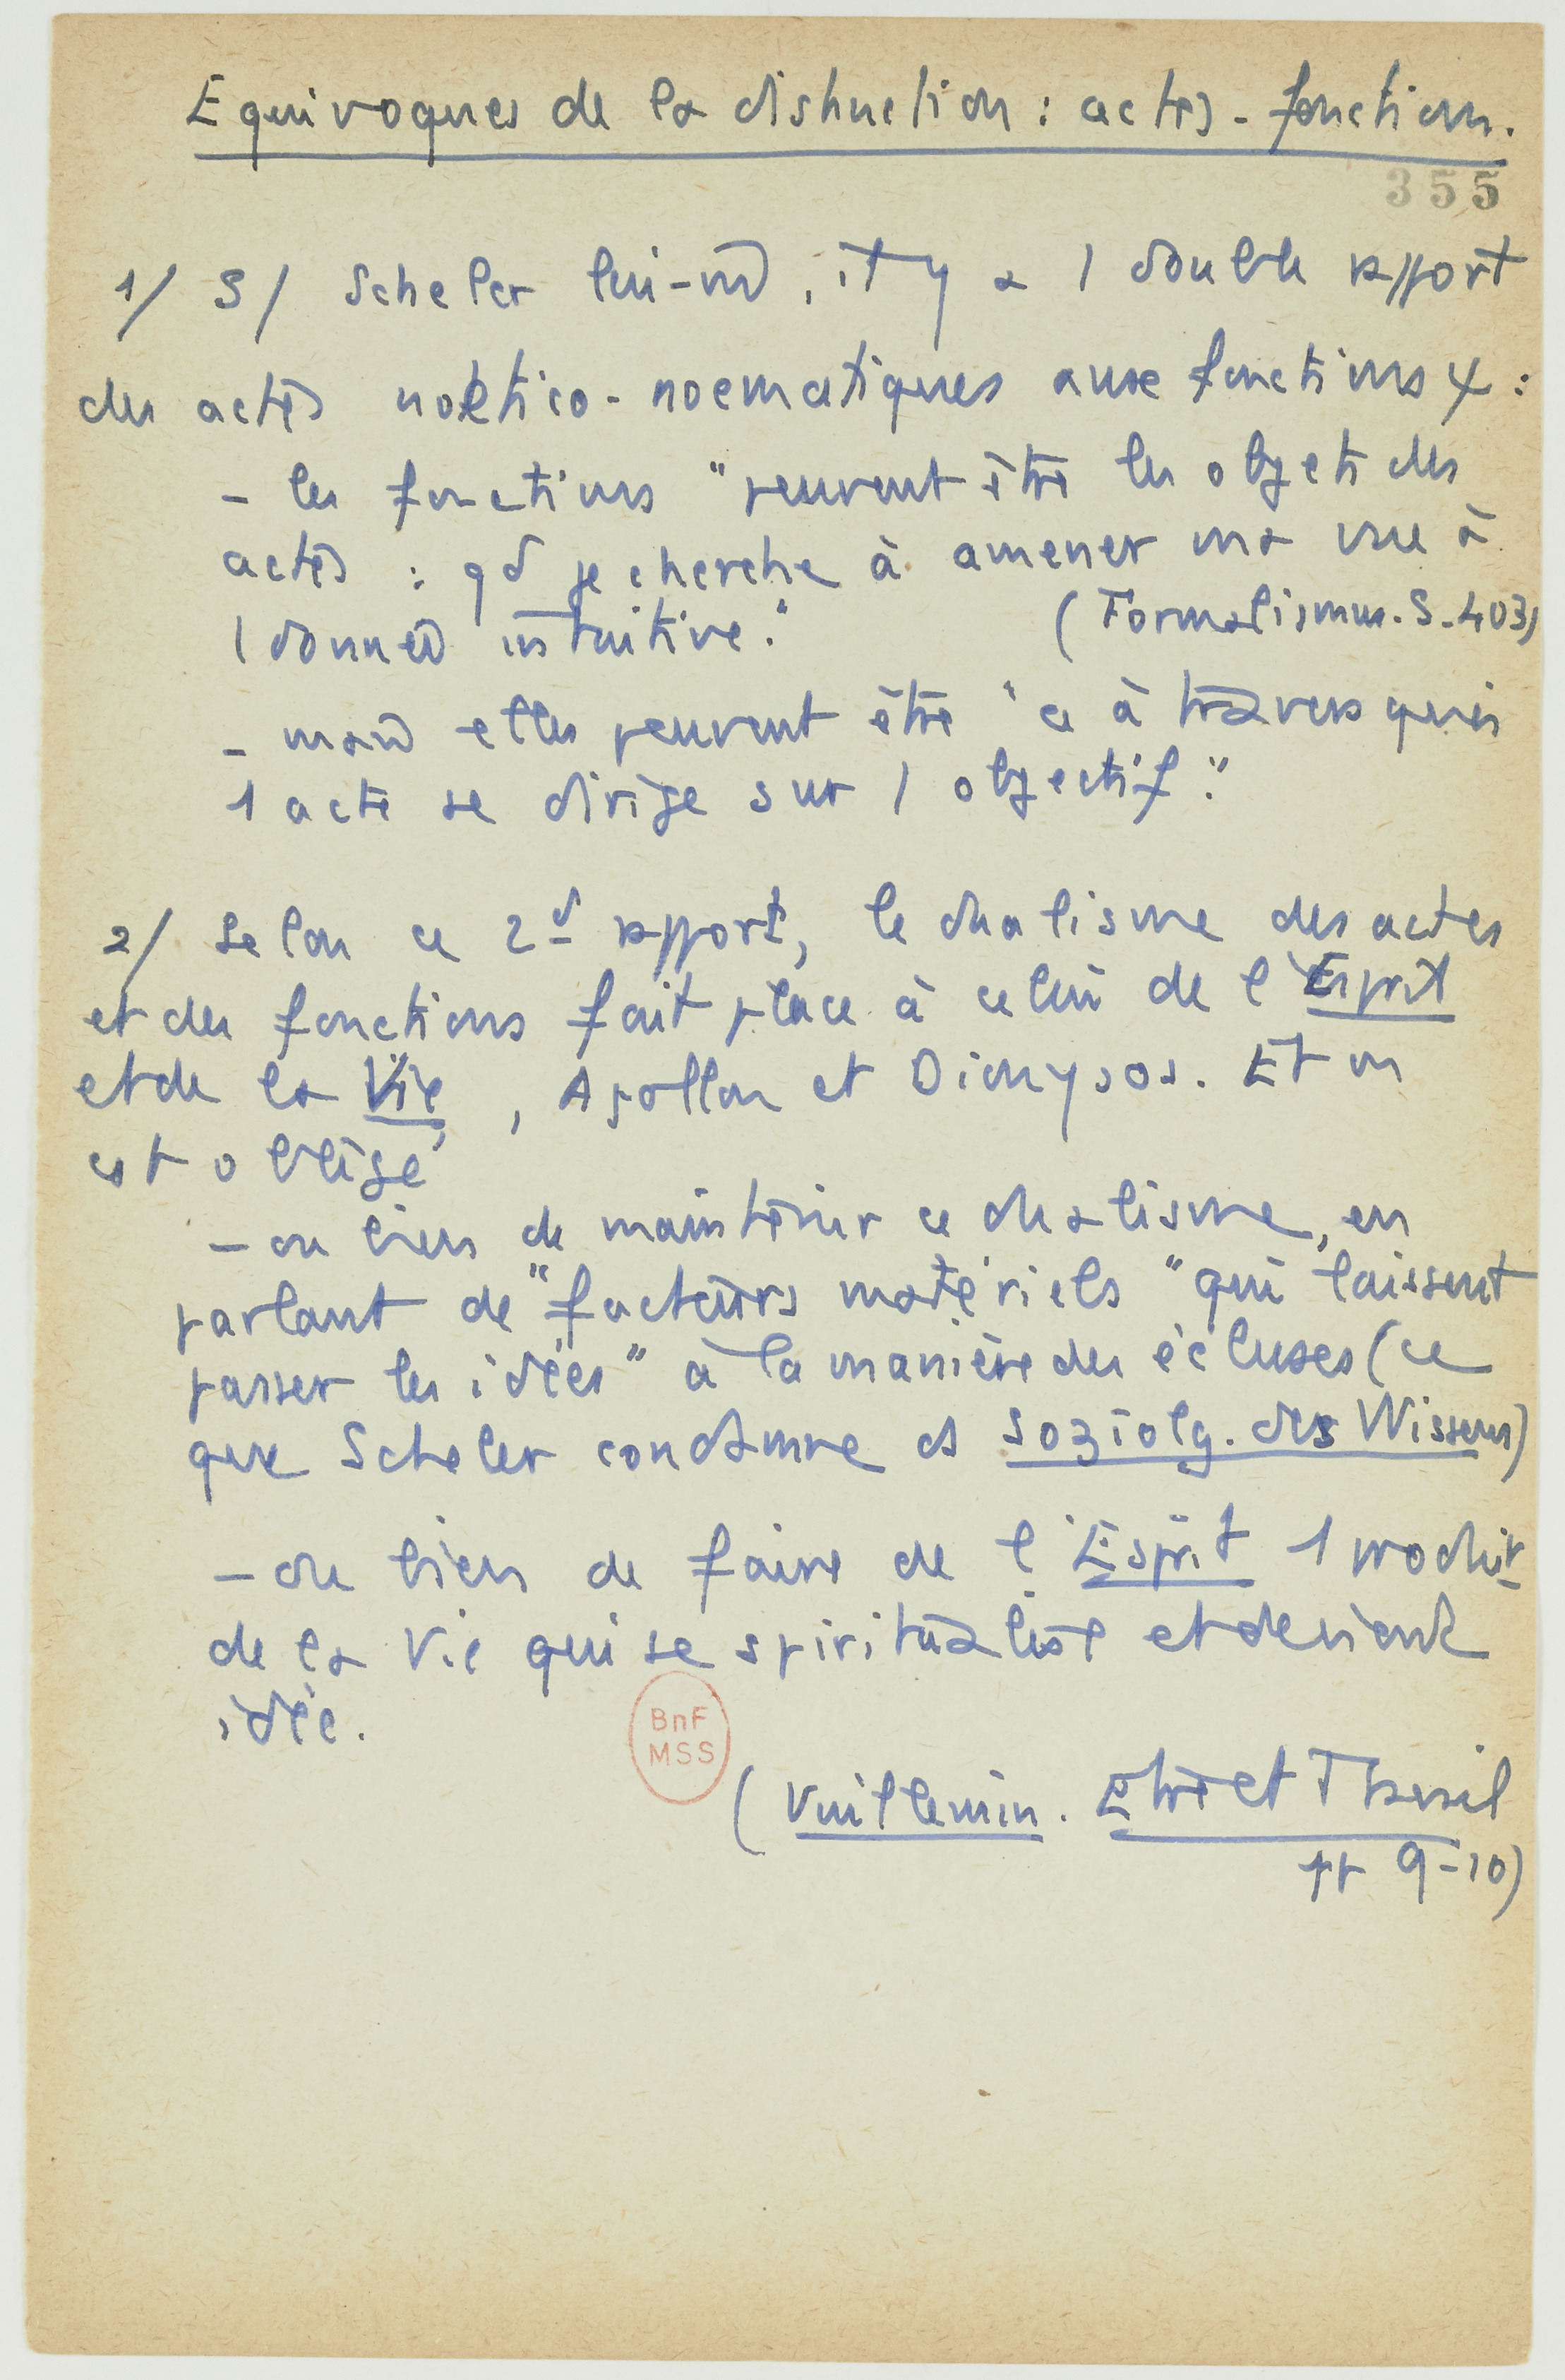 Equivoques de la distinction : actes - fonctions.
355
1/ S/ Scheler lui-m̂, il y a 1 double rapport
des actes noético-noematiques aux fonctions ψ :
- les fonctions "peuvent être les objets des
actes : qd je cherche à amener ma vue à
1 donnée intuitive." (Formalismus. S. 403)
- mais elles peuvent être "ce à travers quoi
1 acte se dirige sur 1 objectif."
2/ Selon ce 2d rapport, le dualisme des actes
et des fonctions fait place à celui de l'Esprit
et de la Vie, Apollon et Dionysos. Et on
est obligé
- ou bien de maintenir ce dualisme, en
parlant de "facteurs matériels" qui laissent
passer les idées" à la manière des écluses (ce
que Scheler condamne ds Soziolg. des Wissens)
- ou bien de faire de l'Esprit 1 produit
de la Vie qui se spiritualise et devient
idée.
BnF
MSS
(Vuillemin. Etre et Travail
pp 9-10)